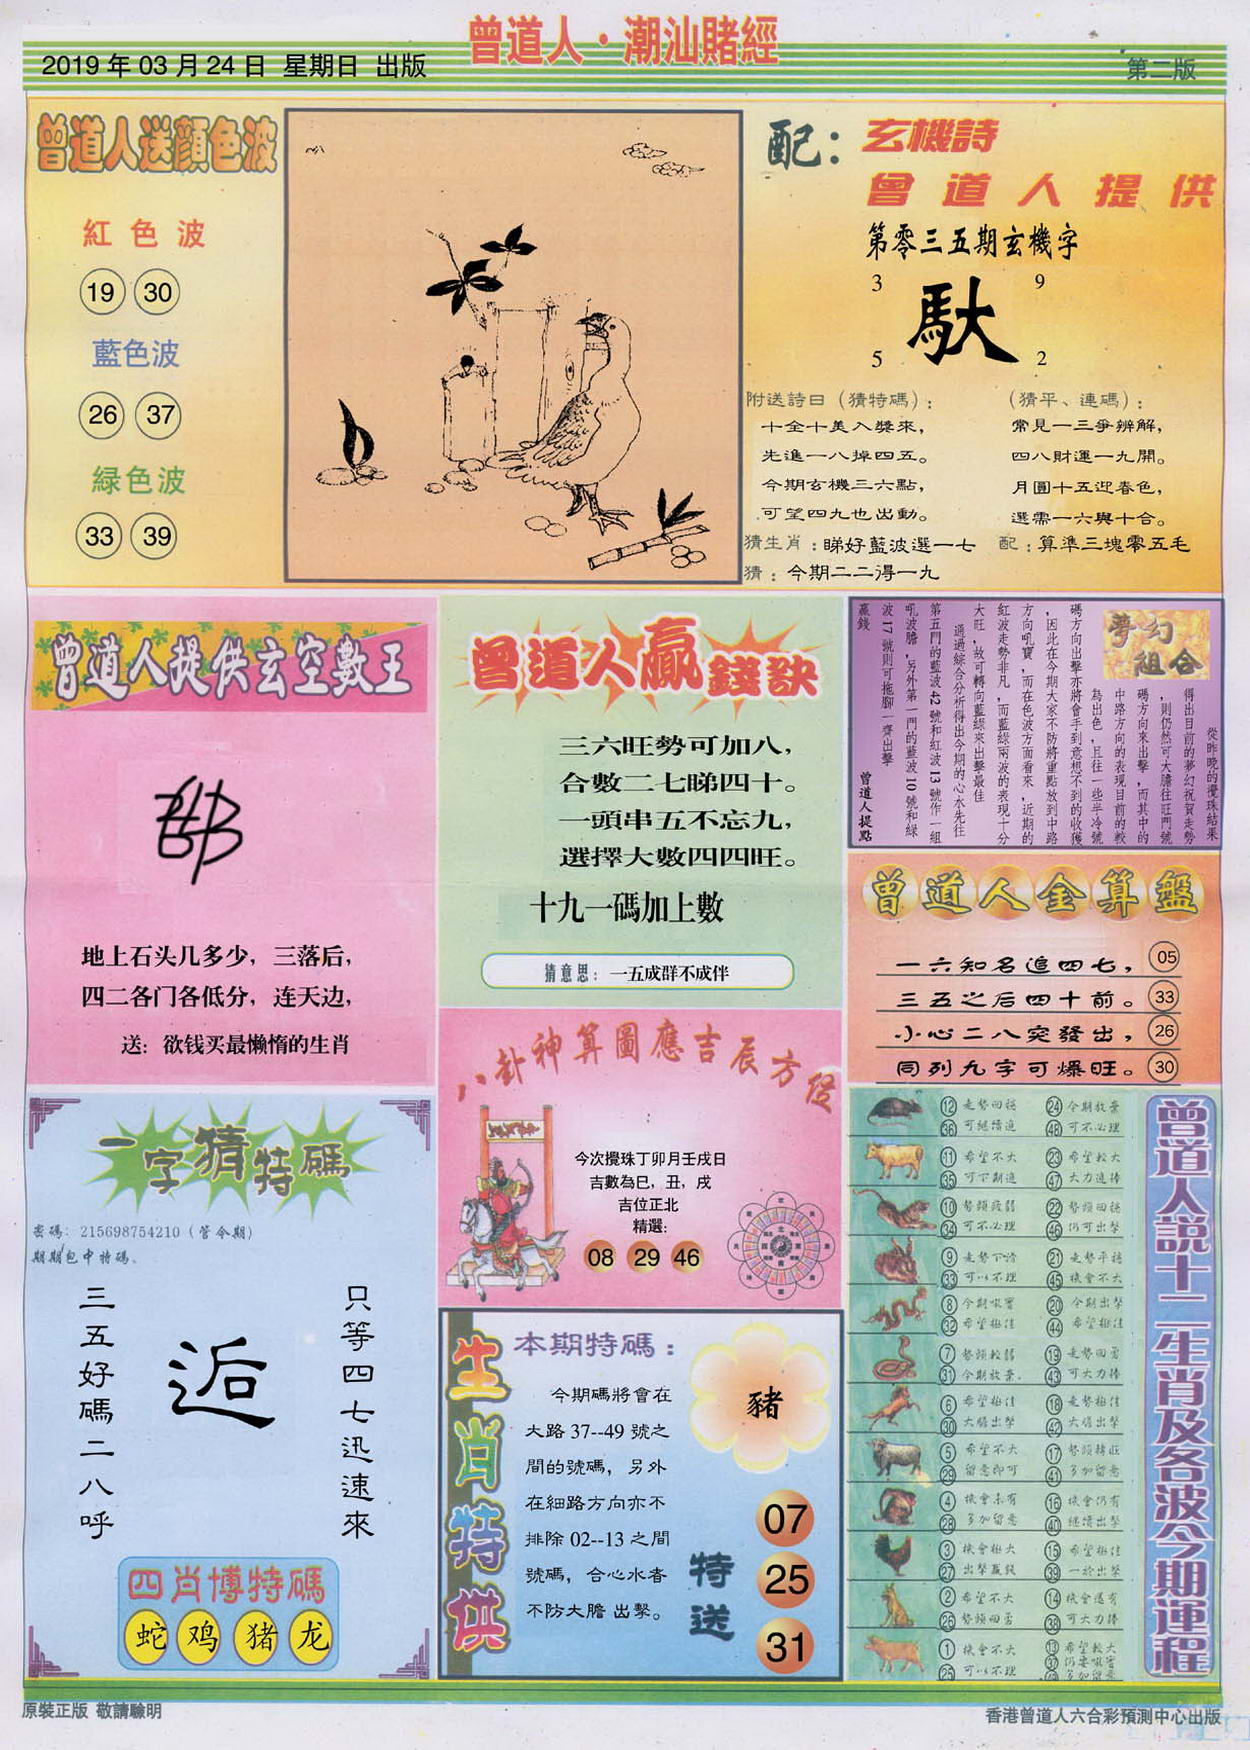 曾道人·潮汕賭經
2019 年 03 月 24 日 星期日 出版
第二版
曾道人送顔色波
紅色波
19 30
藍色波
26 37
緑色波
33 39
配：玄機詩
曾道人提供
第零三五期玄機字
3 9
馱
5 2
附送詩曰（猜特碼）：
十全十美入獎來，
先進一八掉四五。
今期玄機三六點，
可望四九也出動。
（猜平、連碼）：
常見一三爭辨解，
四八財運一九開。
月圓十五迎春色，
選需一六與十合。
猜生肖：睇好藍波選一七
配：算準三塊零五毛
猜：今期二二得一九
曾道人提供玄空數王
地上石头几多少，三落后，
四二各门各低分，连天边，
送：欲钱买最懒惰的生肖
曾道人贏錢訣
三六旺勢可加八，
合數二七睇四十。
一頭串五不忘九，
選擇大數四四旺。
十九一碼加上數
猜意思：一五成群不成伴
夢幻組合
從昨晚的攪珠結果
得出目前的夢幻祝賀走勢
，則仍然可大膽往旺門號
碼方向來出擊，而其中的
中路方向的表現目前的較
為出色，且往一些半冷號
碼方向出擊亦將會手到意想不到的收獲
，因此在今期大家不防將重點放到中路
方向吼寶，而在色波方面看來，近期的
紅波走勢非凡，而藍綠兩波的表現十分
大旺，故可轉向藍綠來出擊最佳
通過綜合分析得出今期的心水先往
第五門的藍波42號和紅波13號作一組
吼波膽，另外第一門的藍波10號和綠
波17號則可拖腳一齊出擊
贏錢
曾道人提點
曾道人金算盤
一六知名追四七，05
三五之后四十前。33
小心二八突發出，26
同列九字可爆旺。30
八卦神算圖應吉辰方位
今次攪珠丁卯月壬戌日
吉數為巳，丑，戌
吉位正北
精選：
08 29 46
一字猜特碼
密碼：215698754210（管令期）
期期包中特碼。
只等四七迅速來
逅
三五好碼二八呼
四肖博特碼
蛇 鸡 猪 龙
生肖特供
本期特碼：
今期碼將會在
大路 37--49 號之
間的號碼，另外
在細路方向亦不
排除 02--13 之間
號碼，合心水者
不防大膽 出擊。
豬
特送
07
25
31
曾道人說十二生肖及各波今期運程
⑫走勢回穩 ㉔今期放棄
㊱可繼續追 ㊽可不必理
⑪希望不大 ㉓希望較大
㉟可下期追 ㊼大力追捧
⑩勢頭疲弱 ㉒勢頭回穩
㉞可不必理 ㊻仍可出擊
⑨走勢下滑 ㉑走勢平穩
㉝可以不理 ㊺機會不大
⑧今期吼寶 ⑳今期出擊
㉜希望極佳 ㊹希望極佳
⑦勢頭較弱 ⑲走勢回勇
㉛今期放棄. ㊸可大力捧
⑥希望極佳 ⑱走勢極佳
㉚大膽出擊 ㊷大膽出擊
⑤希望不大 ⑰勢頭轉旺
㉙留意即可 ㊶多加留意
④機會未有 ⑯機會仍有
㉘多加留意 ㊵繼續出擊
③機會極大 ⑮希望極佳
㉗出擊贏錢 ㊴一於出擊
②希望不大 ⑭機會還有
㉖勢頭回勇 ㊳可大力捧
①機會不大 ⑬希望較大
㉕可以不理 ㊲仍要吼實
㊾多加留意
原裝正版 敬請驗明
香港曾道人六合彩預測中心出版